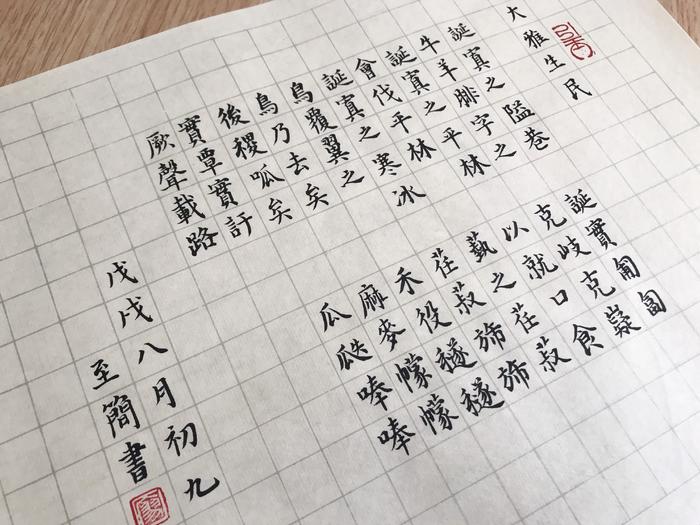 大雅生民
誕寘之隘巷
牛羊腓字之
誕寘之平林
會伐平林
誕寘之寒冰
鳥覆翼之
鳥乃去矣
後稷呱矣
實覃實訏
厥聲載路
誕實匍匐
克岐克嶷
以就口食
蓺之荏菽
荏菽旆旆
禾役穟穟
麻麥幪幪
瓜瓞唪唪
戊戌八月初九
至簡書